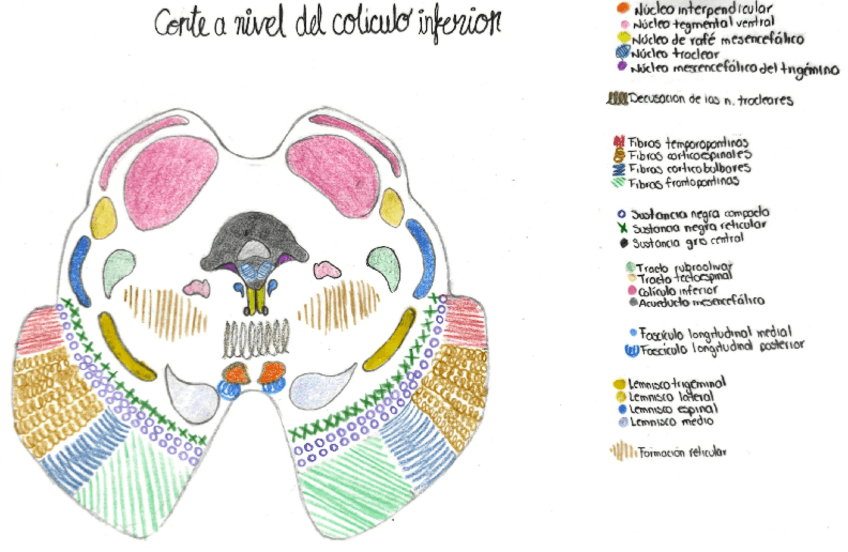 Corte a nivel del colículo inferior
Núcleo interpendicular
Núcleo tegmental ventral
Núcleo de rafé mesencefálico
Núcleo troclear
Núcleo mesencefálico del trigémino
Decusación de los n. trocleares
Fibras temporopontinas
Fibras corticoespinales
Fibras corticobulbares
Fibras frontopontinas
Sustancia negra compacta
Sustancia negra reticular
Sustancia gris central
Tracto rubroolivar
Tracto tectoespinal
Colículo inferior
Acueducto mesencefálico
Fascículo longitudinal medial
Fascículo longitudinal posterior
Lemnisco trigeminal
Lemnisco lateral
Lemnisco espinal
Lemnisco medio
Formación reticular